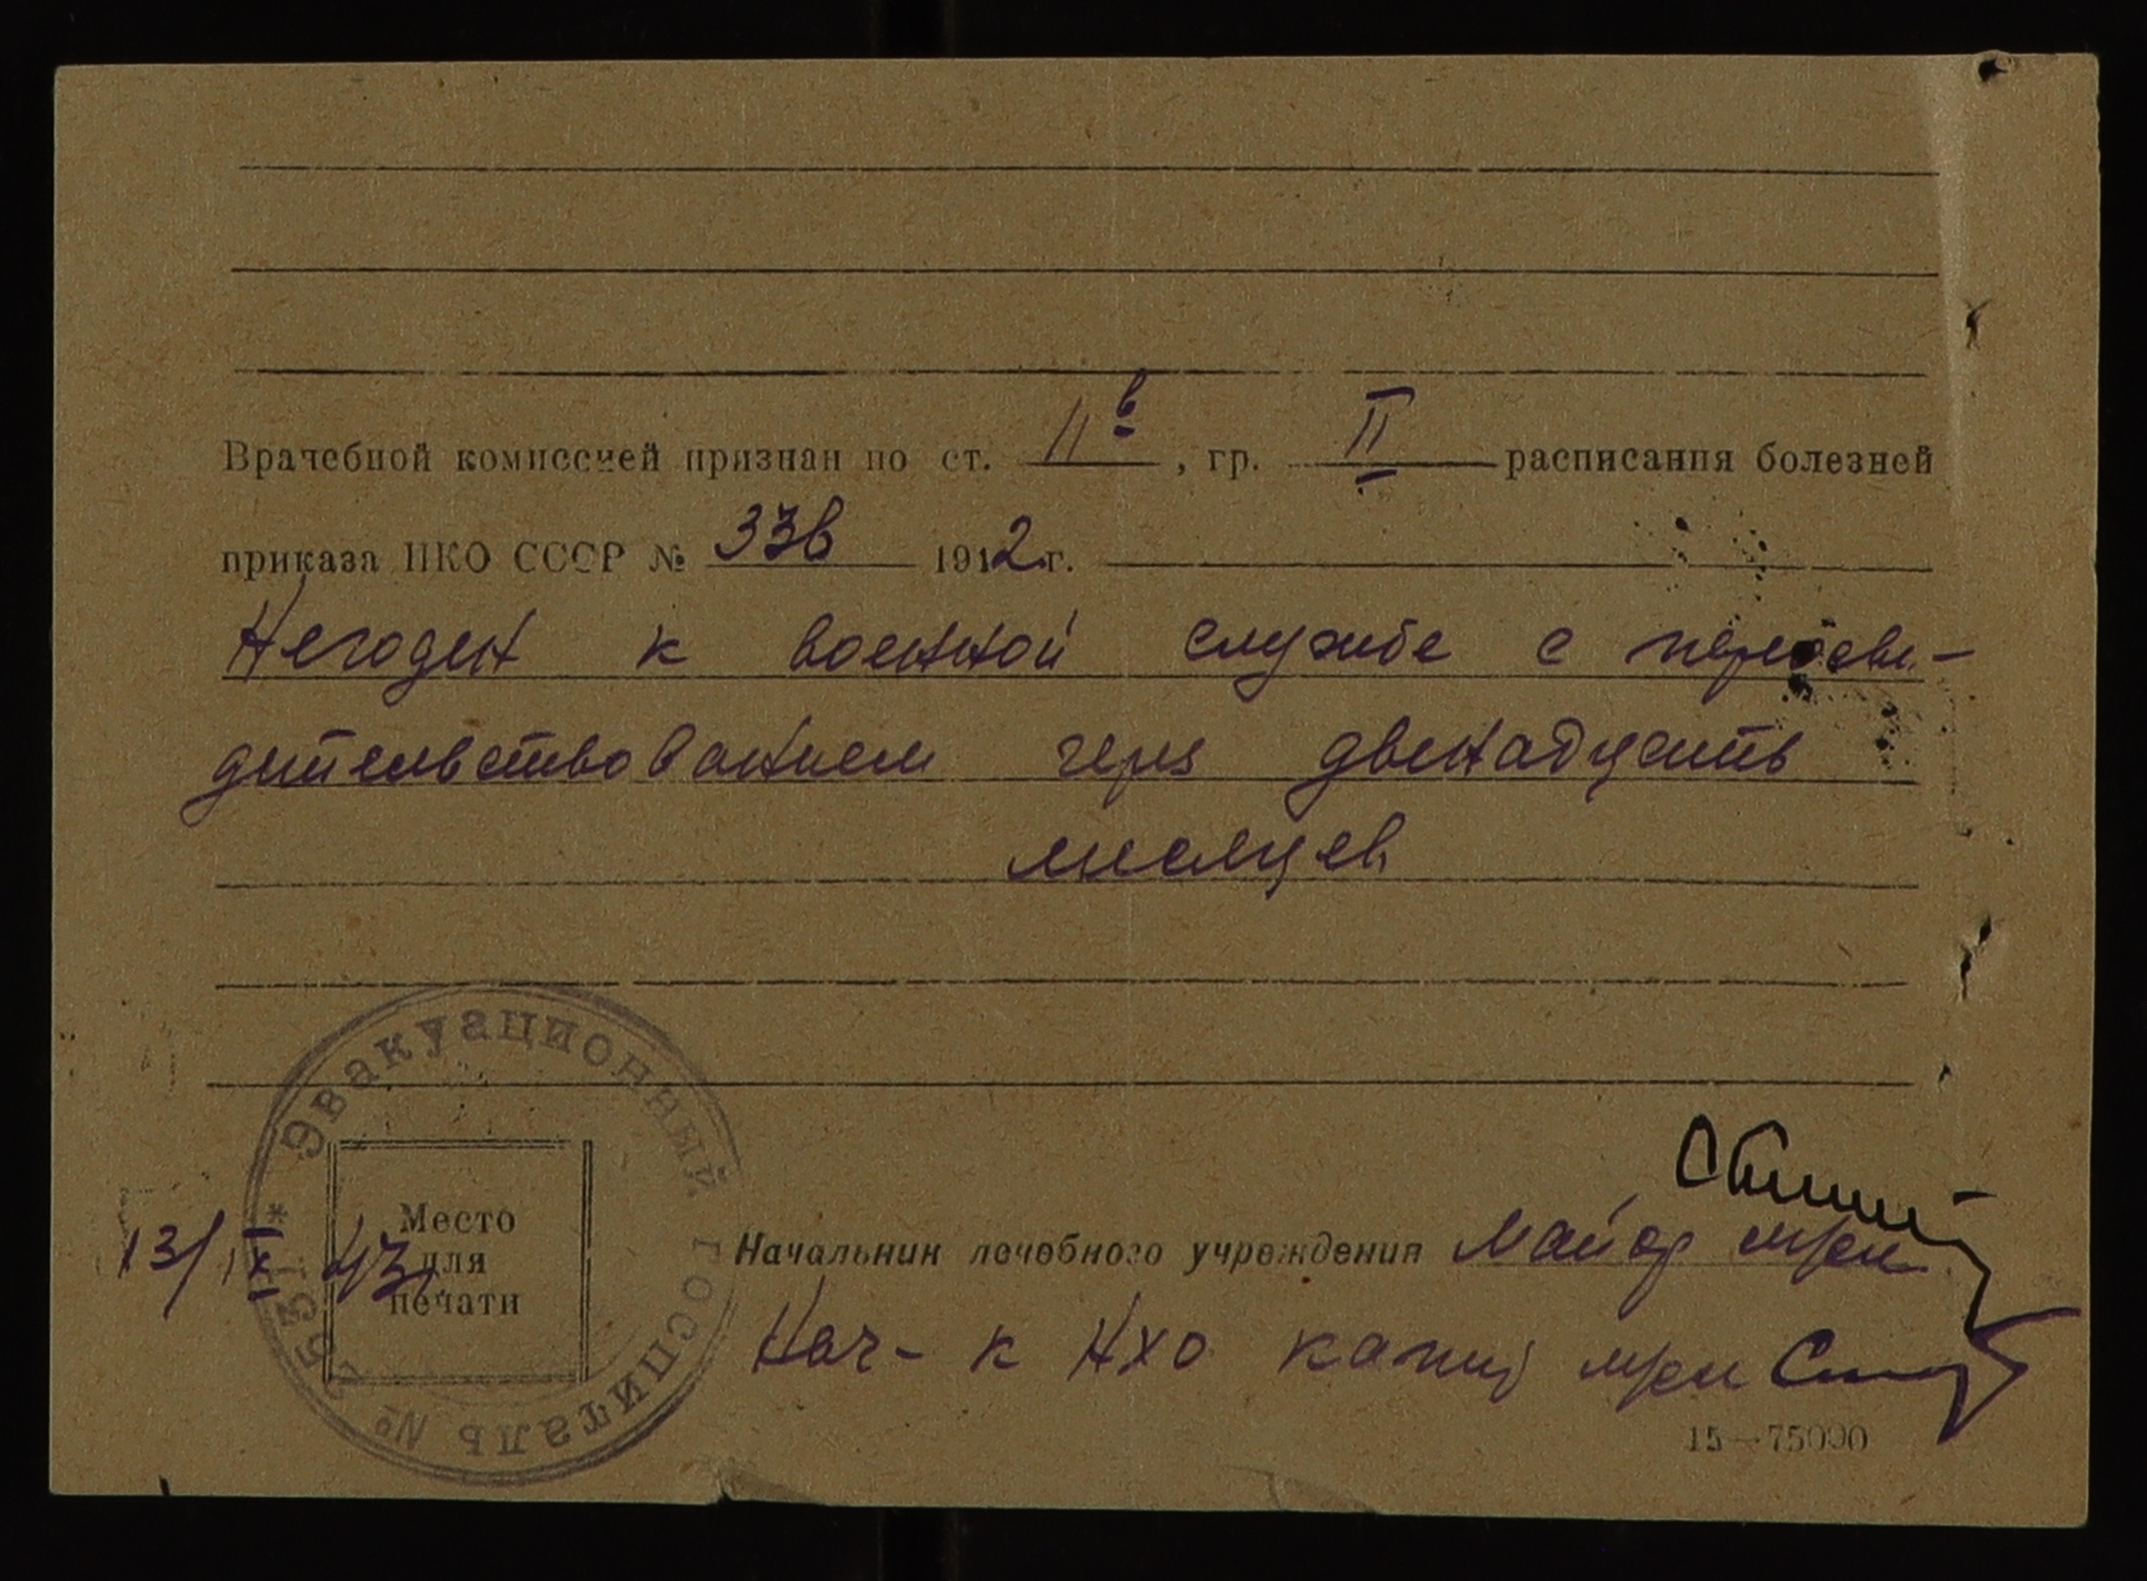 Врачебной комиссией признан по ст. 11в, гр. II расписания болезней
приказа НКО СССР № 336 1942 г.
Негоден к военной службе с пересви-
детельствованием через двенадцать
месяцев
Эвакуационный госпиталь №
Место
для
печати
13/IX 43
Начальник лечебного учреждения Майор
Нач-к НХО капит
15—75090